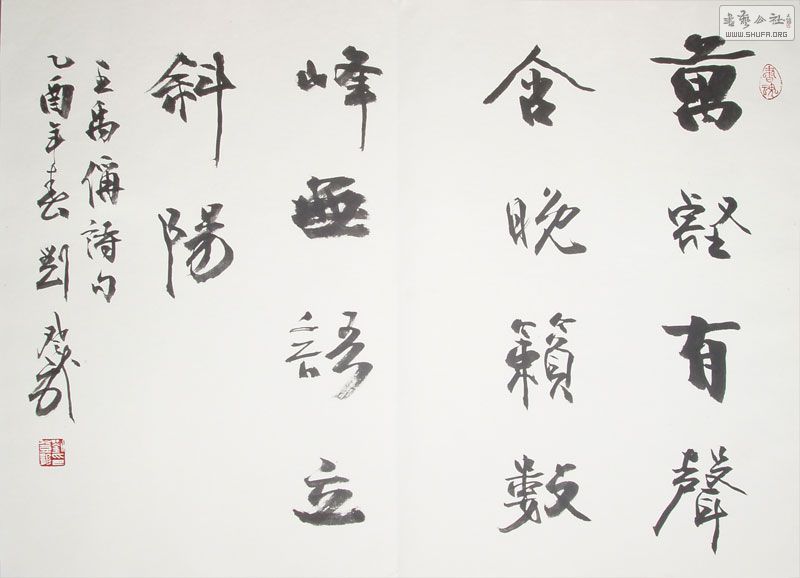 萬壑有聲
含晚籟數
峰無語立
斜陽
王禹偁詩句
乙酉年春劉
書藝公社
WWW.SHUFA.ORG